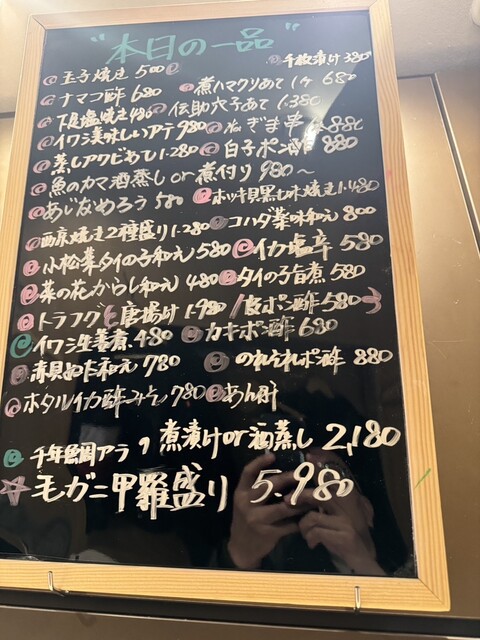 "本日の一品"
玉子焼き 500 千枚漬け 380
ナマコ酢 680 煮ハマグリあて 1ケ 680
下足塩焼き 480 伝助穴子あて 1.380
イワシ美味しいアテ 980 ねぎま串 880
蒸しアワビあて 1.280 白子ポン酢 880
魚のカマ酒蒸し or 煮付け 980〜
あじなめろう 580 ホッキ貝黒七味焼き 1.480
西京焼き2種盛り 1.280 コハダ薬味和え 800
小松菜タイの子和え 580 イカ塩辛 580
菜の花からし和え 480 タイの子旨煮 580
トラフグ 唐揚げ 1.980 / 皮ポン酢 580
イワシ生姜煮 480 カキポン酢 680
赤貝ぬた和え 780 のれそれポン酢 880
ホタルイカ酢みそ 780 あん肝
千年鯛アラ 煮漬け or 酒蒸し 2,180
毛ガニ甲羅盛り 5.980